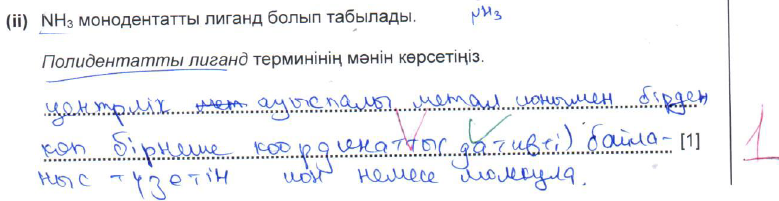 (ii) NH₃ монодентатты лиганд болып табылады. NH₃
Полидентатты лиганд терминінің мәнін көрсетіңіз.
центрлік ауыспалы металл ионымен бірден
көп бірнеше координаттты (дативті) байла- [1] 1
ныс түзетін ион немесе молекула.